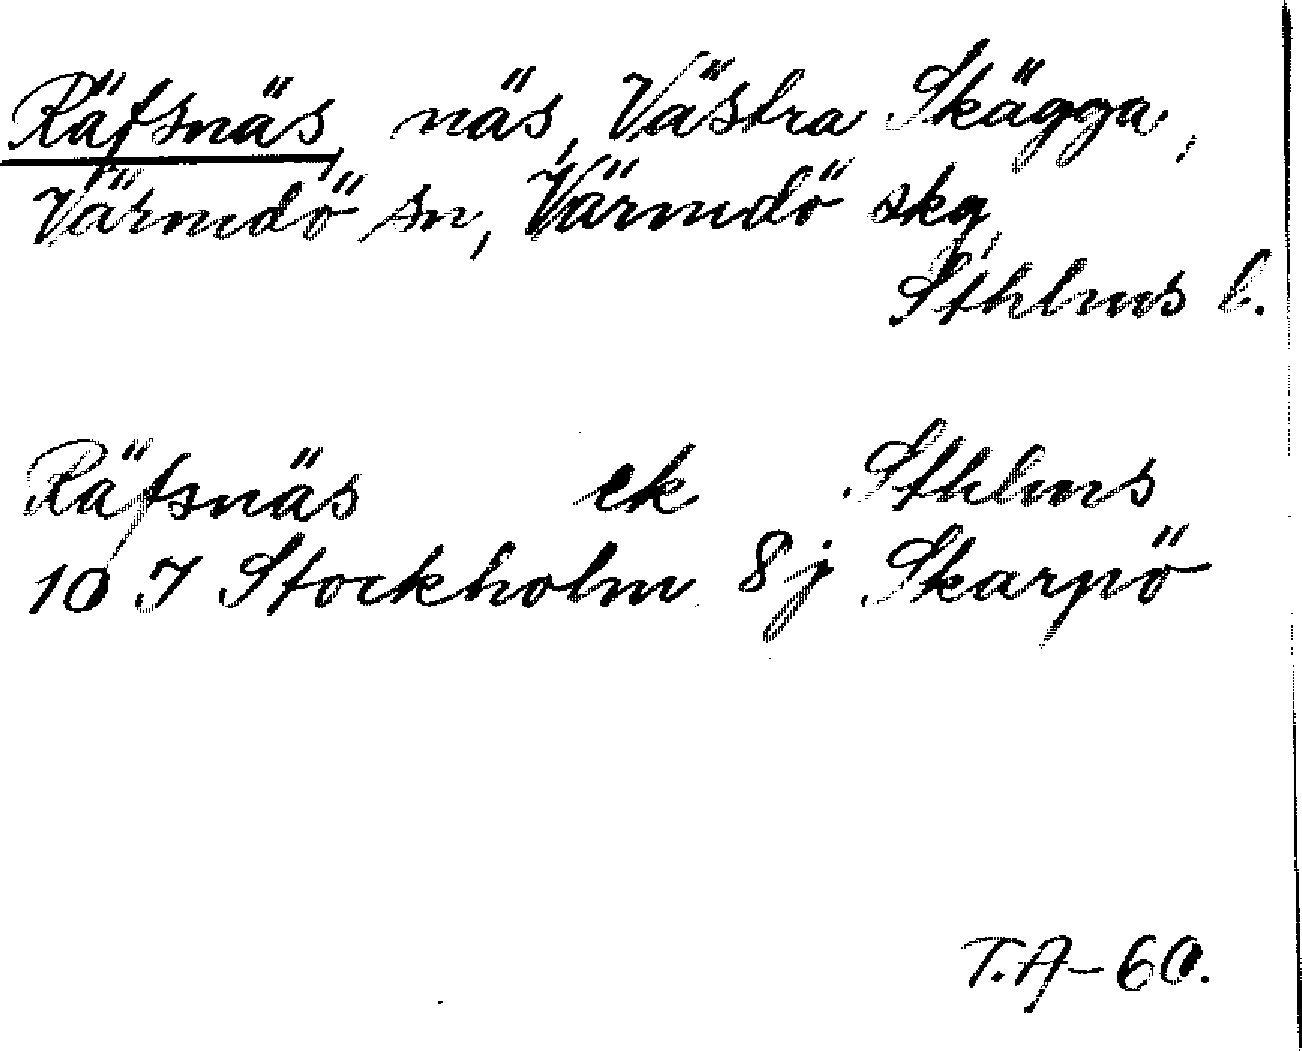 Räfsnäs, näs, Västra Skägga,
Värmdö sn, Värmdö skg,
Sthlms l.
Räfsnäs ek Sthlms
10 I Stockholm 8 j Skarpö
T.A-60.